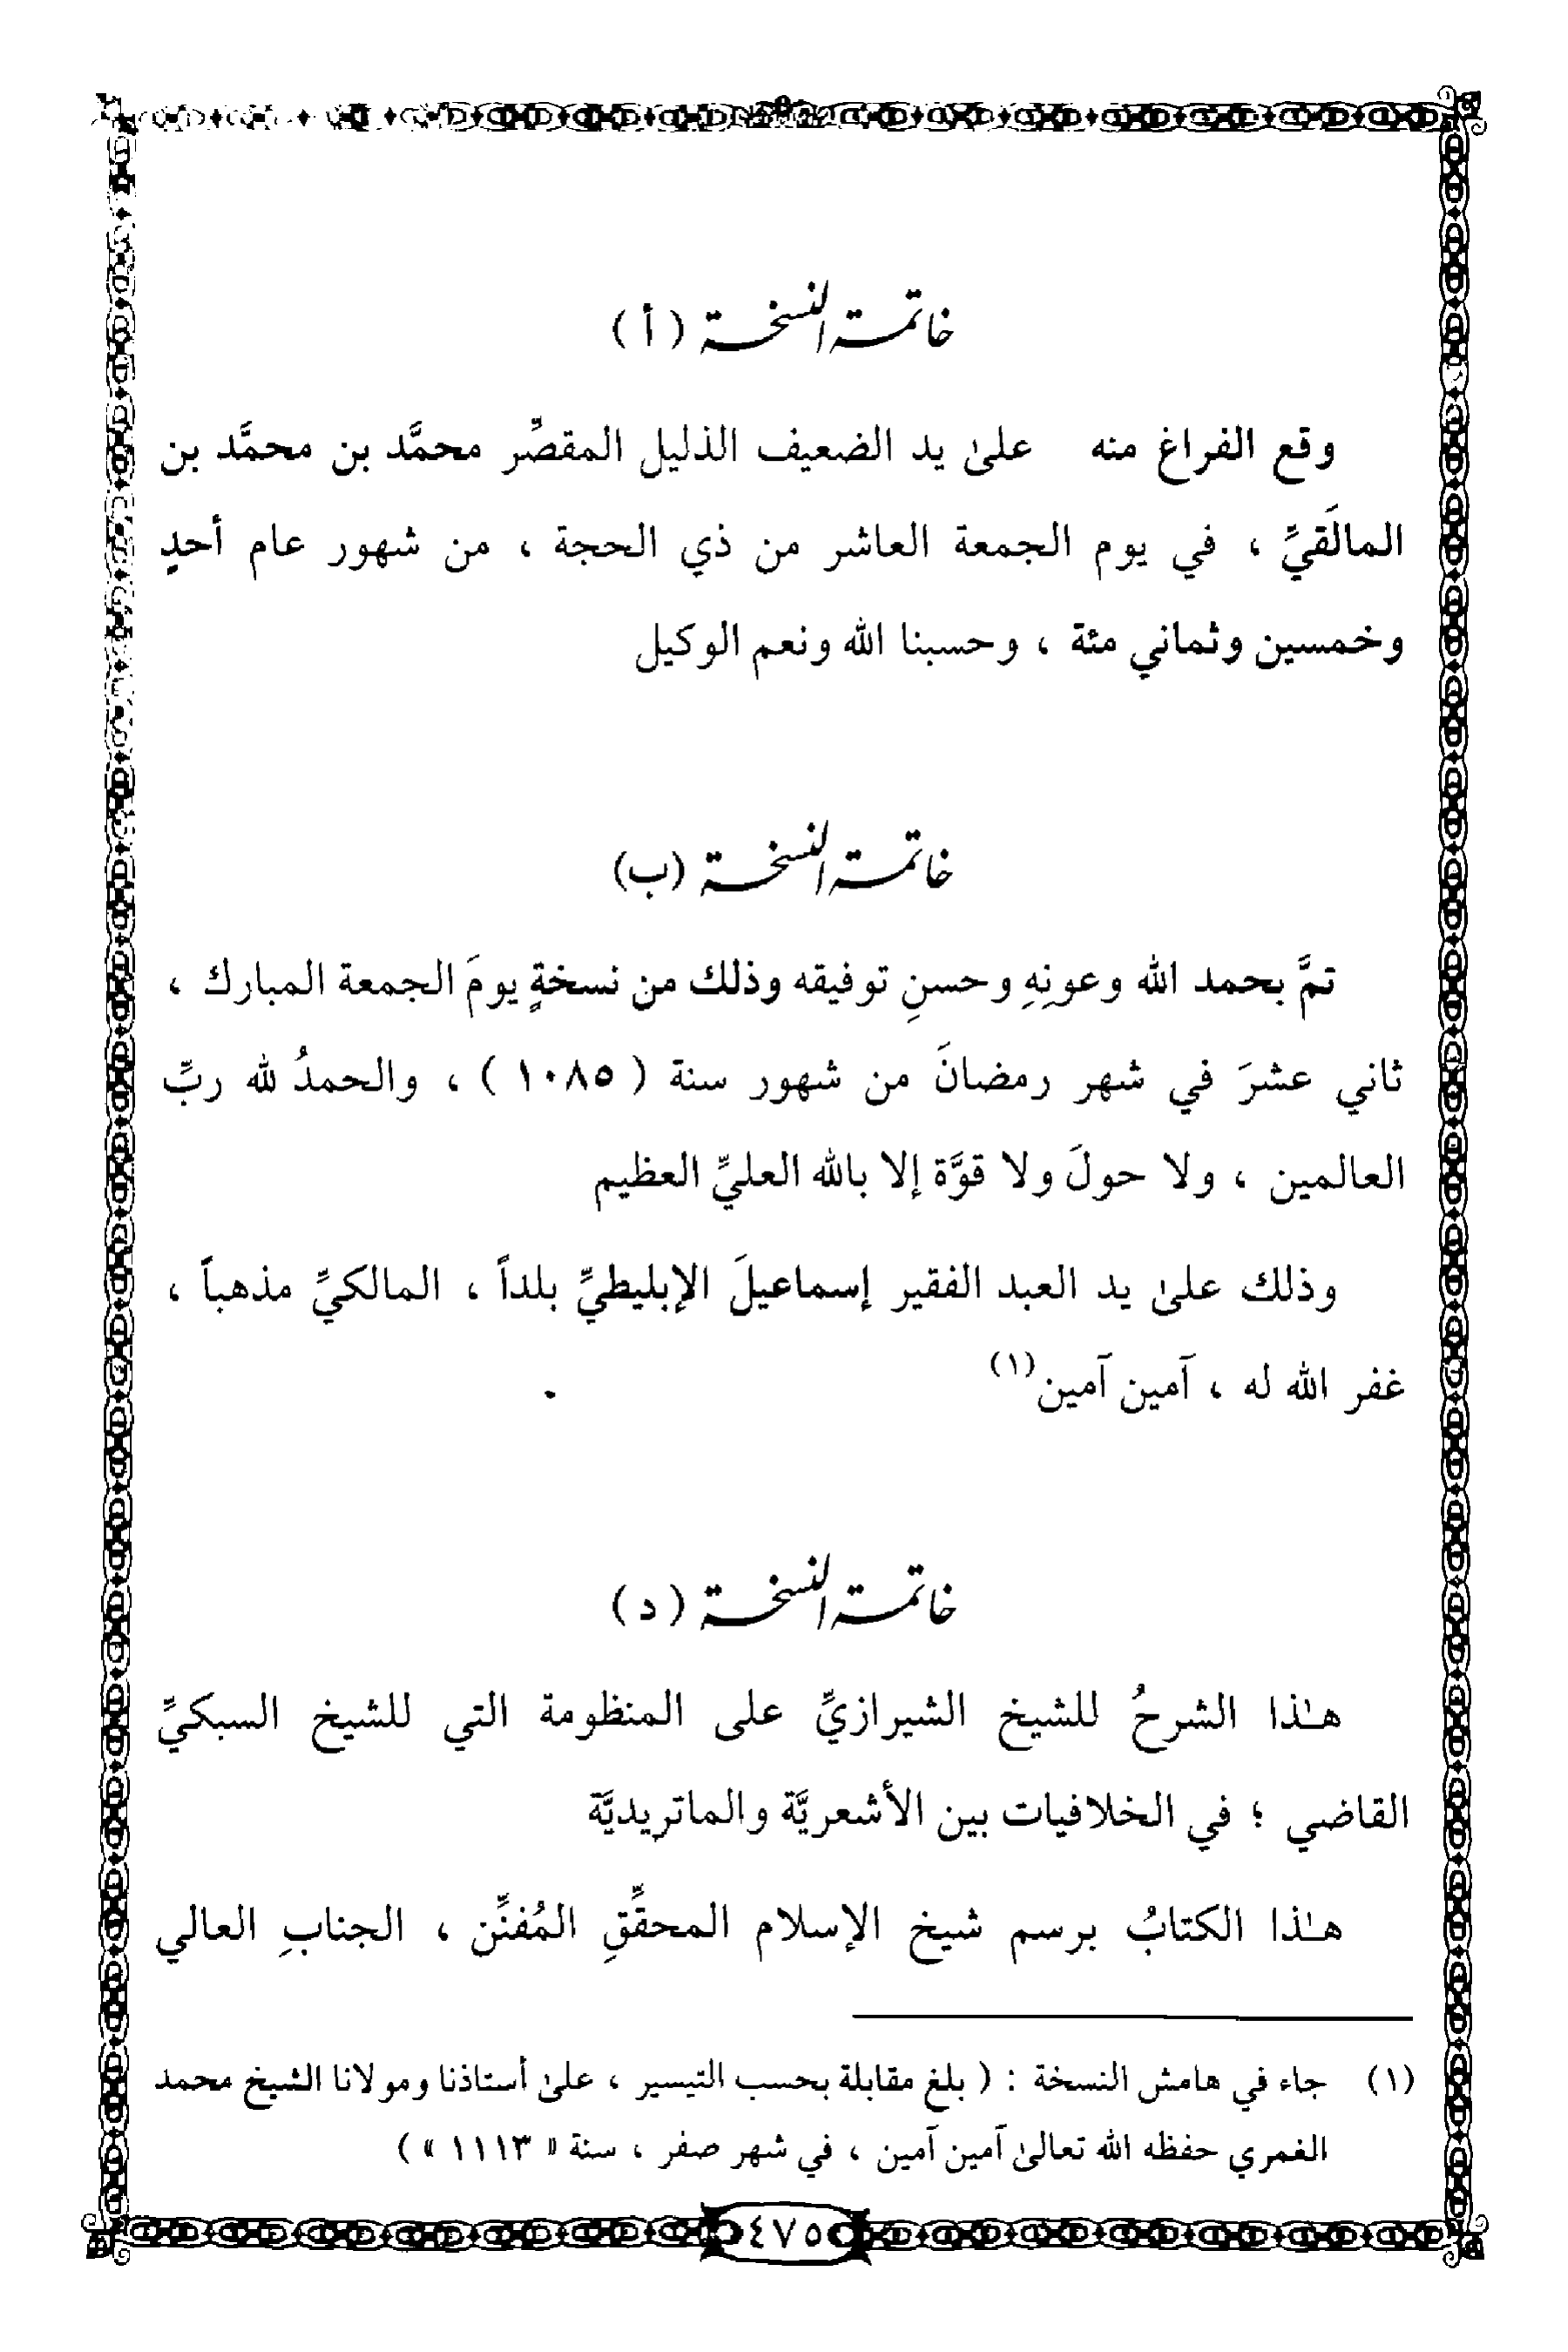 خاتمة النسخة ( أ )
وقع الفراغ منه على يد الضعيف الذليل المقصِّر محمَّد بن محمَّد بن
المالَقيِّ ، في يوم الجمعة العاشر من ذي الحجة ، من شهور عام أحدٍ
وخمسين وثماني مئة ، وحسبنا الله ونعم الوكيل
خاتمة النسخة (ب)
تمَّ بحمد الله وعونِهِ وحسنِ توفيقه وذلك من نسخةٍ يومَ الجمعة المبارك ،
ثاني عشرَ في شهر رمضانَ من شهور سنة ( ١٠٨٥ ) ، والحمدُ لله ربِّ
العالمين ، ولا حولَ ولا قوَّة إلا بالله العليِّ العظيم
وذلك علىٰ يد العبد الفقير إسماعيلَ الإبليطيِّ بلداً ، المالكيِّ مذهباً ،
غفر الله له ، آمين آمين(١)
خاتمة النسخة ( د )
هـٰذا الشرحُ للشيخ الشيرازيِّ على المنظومة التي للشيخ السبكيِّ
القاضي ؛ في الخلافيات بين الأشعريَّة والماتريديَّة
هـٰذا الكتابُ برسم شيخ الإسلام المحقِّقِ المُفنِّن ، الجنابِ العالي
(١) جاء في هامش النسخة : ( بلغ مقابلة بحسب التيسير ، علىٰ أستاذنا ومولانا الشيخ محمد
الغمري حفظه الله تعالىٰ آمين آمين ، في شهر صفر ، سنة « ١١١٣ » )
٤٧٥